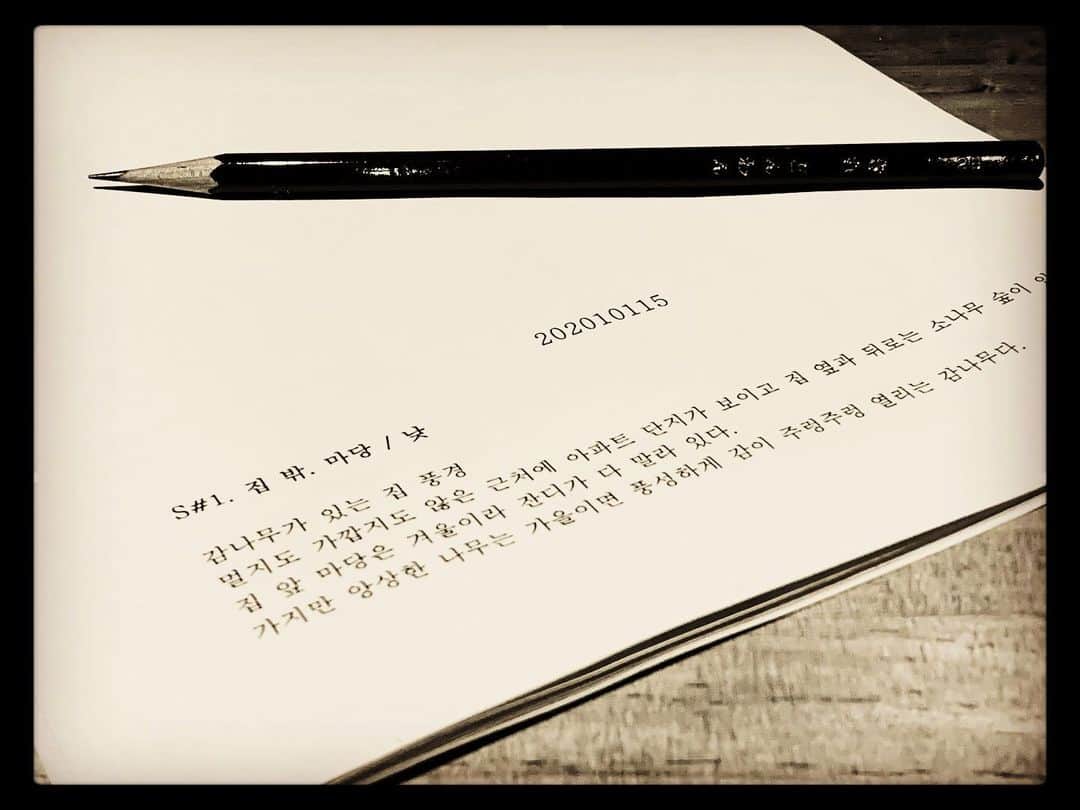 202010115
S#1. 집 밖. 마당 / 낮
감나무가 있는 집 풍경
멀지도 가깝지도 않은 근처에 아파트 단지가 보이고 집 옆과 뒤로는 소나무 숲이
집 앞 마당은 겨울이라 잔디가 다 말라 있다.
가지만 앙상한 나무는 가을이면 풍성하게 감이 주렁주렁 열리는 감나무다.